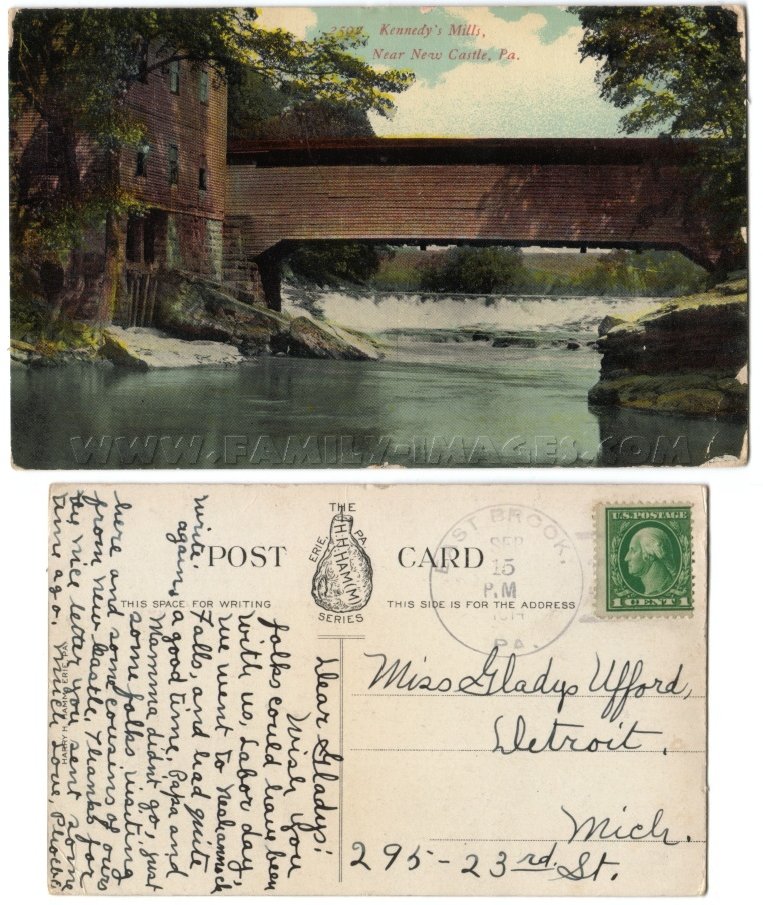 Kennedy's Mills,
Near New Castle, Pa.
WWW.FAMILY-IMAGES.COM
POST CARD
THE
H.H.HAMM
ERIE PA
SERIES
THIS SPACE FOR WRITING
THIS SIDE IS FOR THE ADDRESS
EAST BROOK,
SEP
15
P.M
PA.
U.S. POSTAGE
1 CENT 1
Miss Gladys Ufford,
Detroit.
Mich.
295-23rd. St.
Dear Gladys:
Wish you
folks could have been
with us, Labor day,
we went to Neshannock
Falls, and had quite
a good time, Papa and
Mamma didn't go, just
some folks visiting
here and some cousins of ours
from New Castle. Thanks for
nice letter you sent some
time ago. Much Love, Phoebe
write.
again,
HARRY H. HAMM, ERIE, PA.